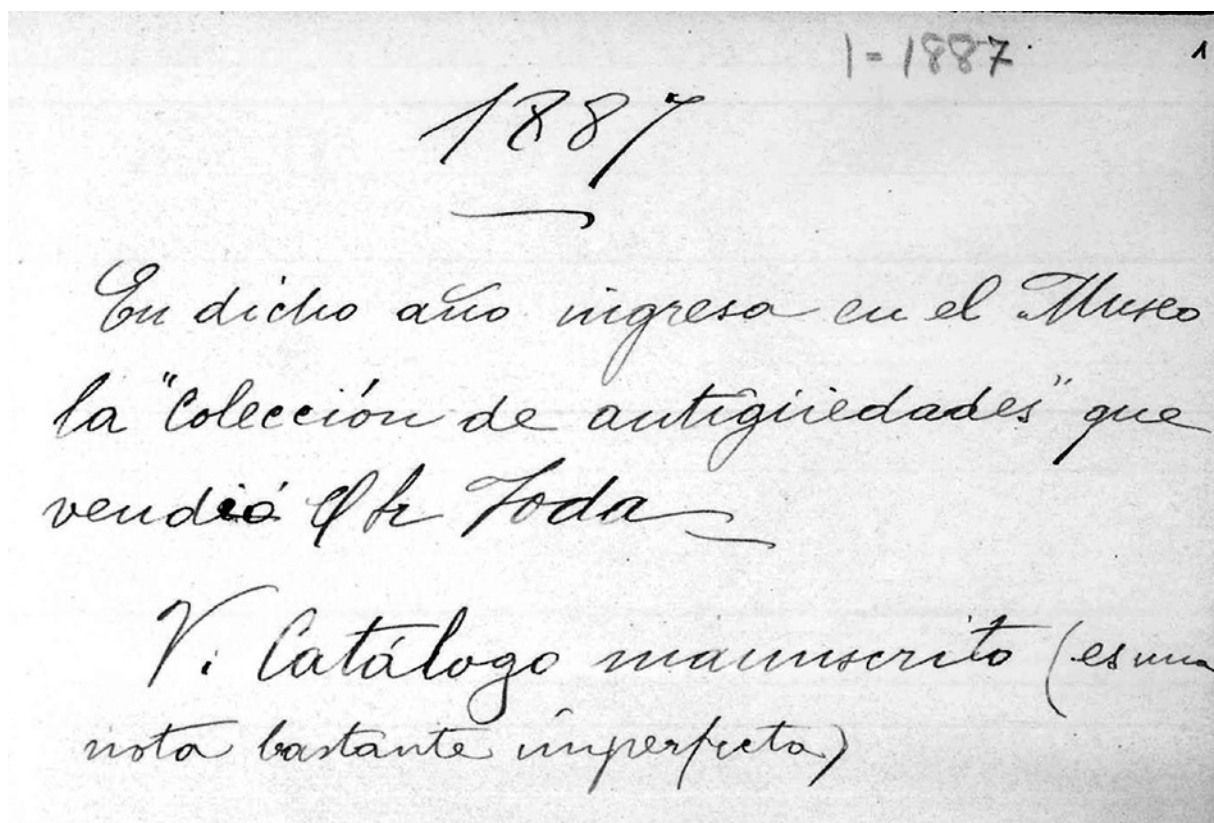 1-1887. 1
1887
En dicho año ingresa en el Museo
la "Colección de antigüedades" que
vendió el Sr Toda
V. Catálogo manuscrito (es una
nota bastante imperfecta)